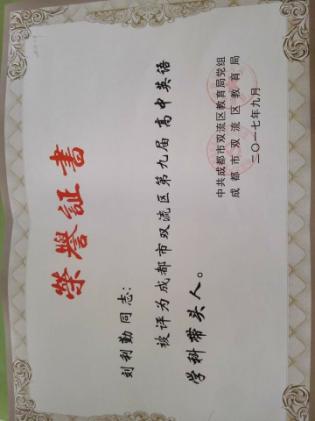 荣誉证书
刘利勤同志:
被评为成都市双流区第九届高中英语
学科带头人。
中共成都市双流区教育局党组
成都市双流区教育局
二〇一七年九月